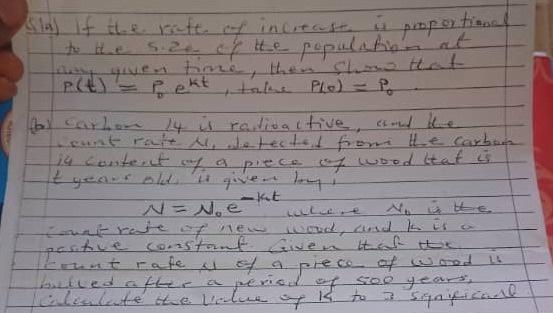 5(a) If the rate of increase is proportional
to the size of the population at
any given time, then show that
P(t) = P₀ e^kt, take P(0) = P₀.
(b) Carbon 14 is radioactive, and the
count rate N, detected from the carbon
14 content of a piece of wood that is
t years old, is given by,
N = N₀e^-kt where N₀ is the
count rate of new wood, and k is a
postive constant. Given that the
count rate of a piece of wood is
halved after a period of 500 years,
Calculate the value of K to 3 significant